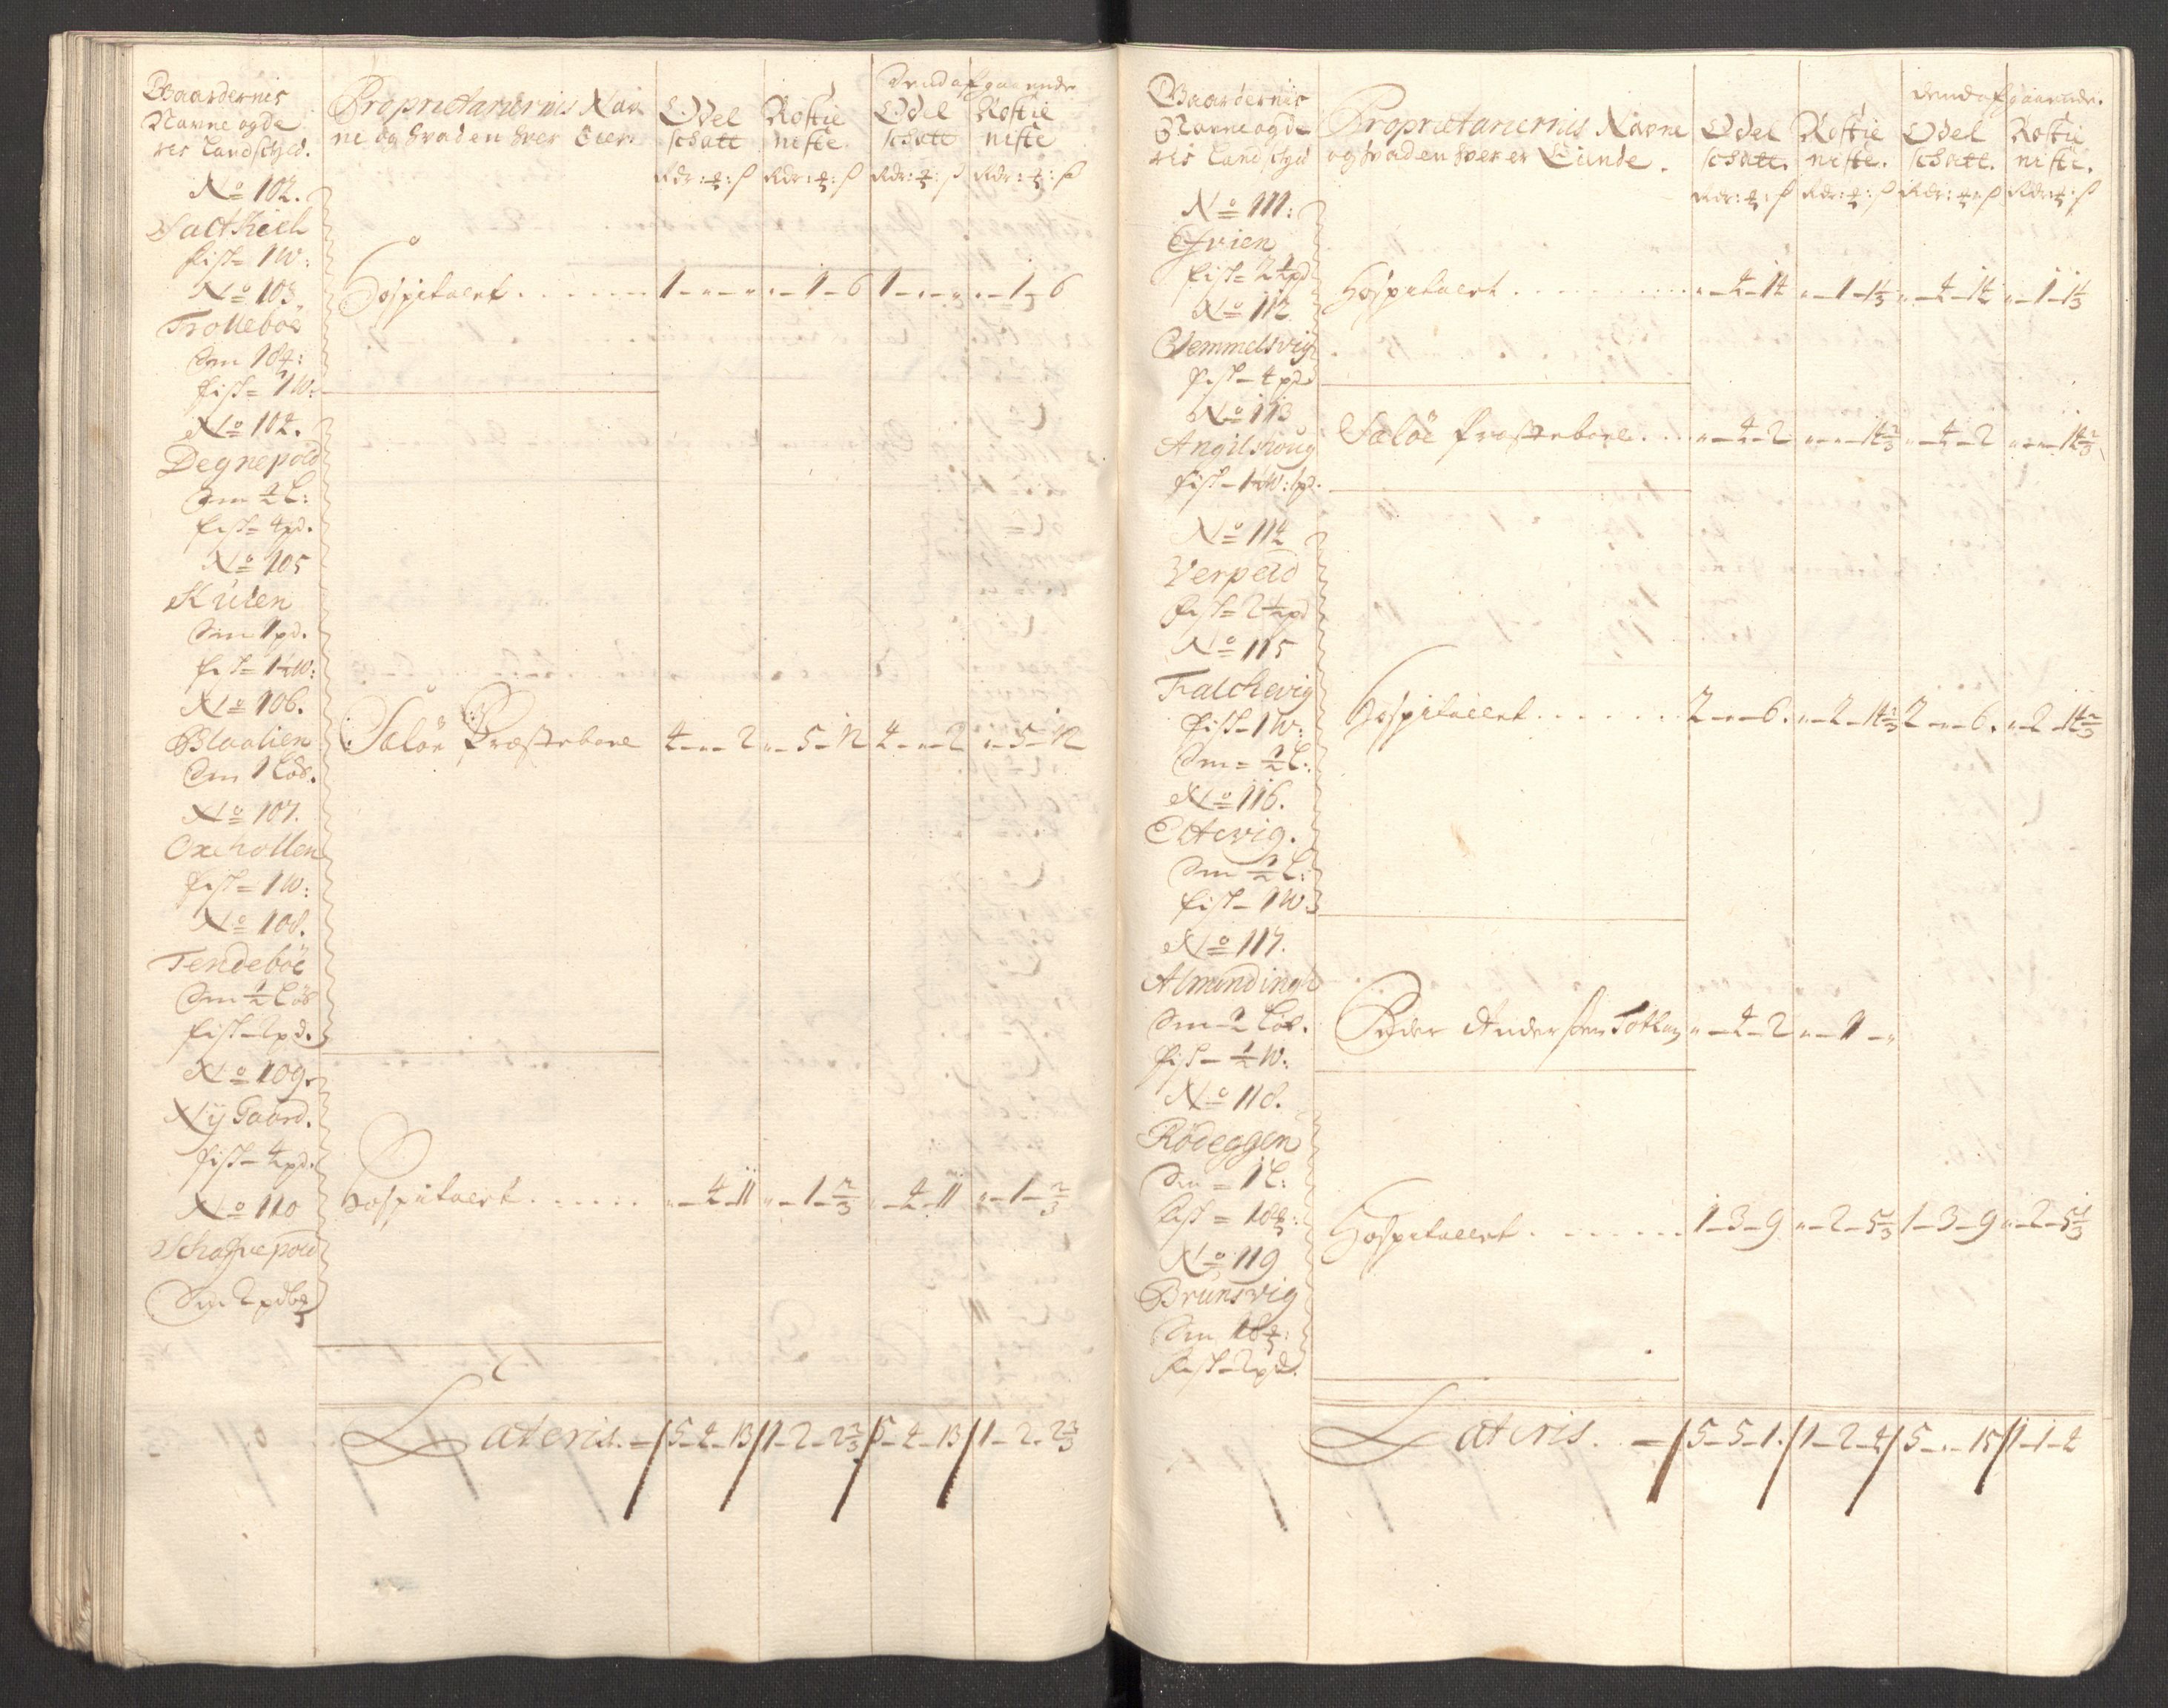 Gaardernis
Nafne og de
ris Landschyld.
Proprietariernis Naf
ne og hvad en hver Eier
Odel
schatt
Rdr: : ß
Rostie
niste
Rdr: : ß
dend afgaaende
Odel
schatt
Rdr: : ß
Rostie
niste
Rdr: : ß
No 102.
Saltkield
fisk = 1 W:
No 103
Trolleböe
Sm 104:
fisk = 1 W:
Hospitalet . . . . . . . 1 - „ - „ „ - 1 - 6 1 - „ - „ „ - 1 - 6
No 104.
Degnepold
Sm ½ L:
fisk = 4 pd.
No 105
Kulen
Sm 1 pd.
fisk = 1 W:
No 106.
Blaalien
Sm 1 Löb.
No 107.
Oxehollen
fisk = 1 W:
No 108.
Tendeböe
Sm ½ Löb
fisk - 2 pd.
Saløe Præstebole 4 - „ - 2 „ - 5 - 12 4 - „ - 2 „ - 5 - 12
No 109.
Nÿ Gaard.
fisk - 4 pd.
No 110
Schalfvepold
Sm 2 pd 6
Hospitalet . . . . . . „ - 4 - 11 „ - 1 - ⅔ „ - 4 - 11 „ - 1 - ⅔
Lateris. = 5 - 4 - 13 1 - 2 - 2⅔ 5 - 4 - 13 1 - 2 - 2⅔
Gaardernis
Nafne og de
ris Landschyld
Proprietariernis Nafne
og hvad en hver er Eiende.
Odel
schatt.
Rdr: : ß
Rostie
niste.
Rdr: : ß
dend afgaaende.
Odel
schatt.
Rdr: : ß
Rostie
niste.
Rdr: : ß
No 111:
Efrien
fisk = 2½ pd
No 112
Vemmelsvig
fisk - 4 pd
Hospitalet . . . . . . . . . „ - 4 - 14 „ - 1 - 1⅓ „ - 4 - 14 „ - 1 - 1⅓
No 113
Angilshoug
fisk - 1 W: 1 pd.
Saløe Præstebole . . . „ - 4 - 2 „ - „ - 14⅔ „ - 4 - 2 „ - „ - 14⅔
No 114
Verpeld
fisk = 2½ pd
No 115
Falchevig
fisk - 1 W:
Sm = ½ L:
No 116.
Eltevig.
Sm ½ L:
fisk - 1 W
Hospitalet . . . . . . . 2 - „ - 6. „ - 2 - 14⅔ 2 - „ - 6. „ - 2 - 14⅔
No 117.
Almindingh
Sm - ½ Löb.
fisk - ½ W:
Peder Andersen Totland „ - 4 - 2 „ - 1 - „
No 118.
Rödeggen
Sm = 1 L:
fisk = 18 :
No 119
Brunsvig
Sm 18 :
fisk - 2 pd.
Hospitalet . . . . . . 1 - 3 - 9 „ - 2 - 5⅓ 1 - 3 - 9 „ - 2 - 5⅓
Lateris. = 5 - 5 - 1. 1 - 2 - 4 5 - „ - 15 1 - 1 - 4